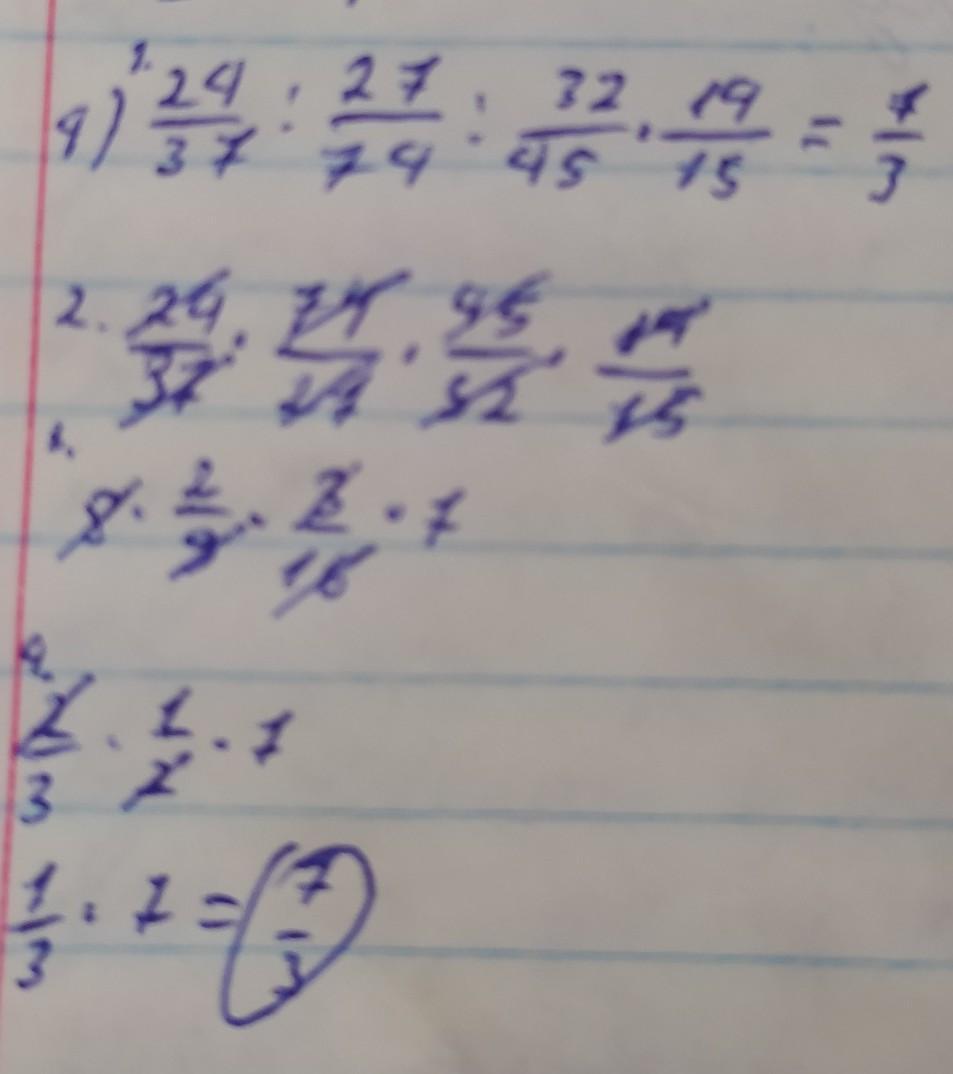 1.
4) 24/37 : 27/74 : 32/45 · 14/15 = 7/3
2. 24/37 · 74/27 · 45/32 · 14/15
8 · 2/9 · 3/16 · 7
4.
2/3 · 1/2 · 7
1/3 · 7 = 7/3